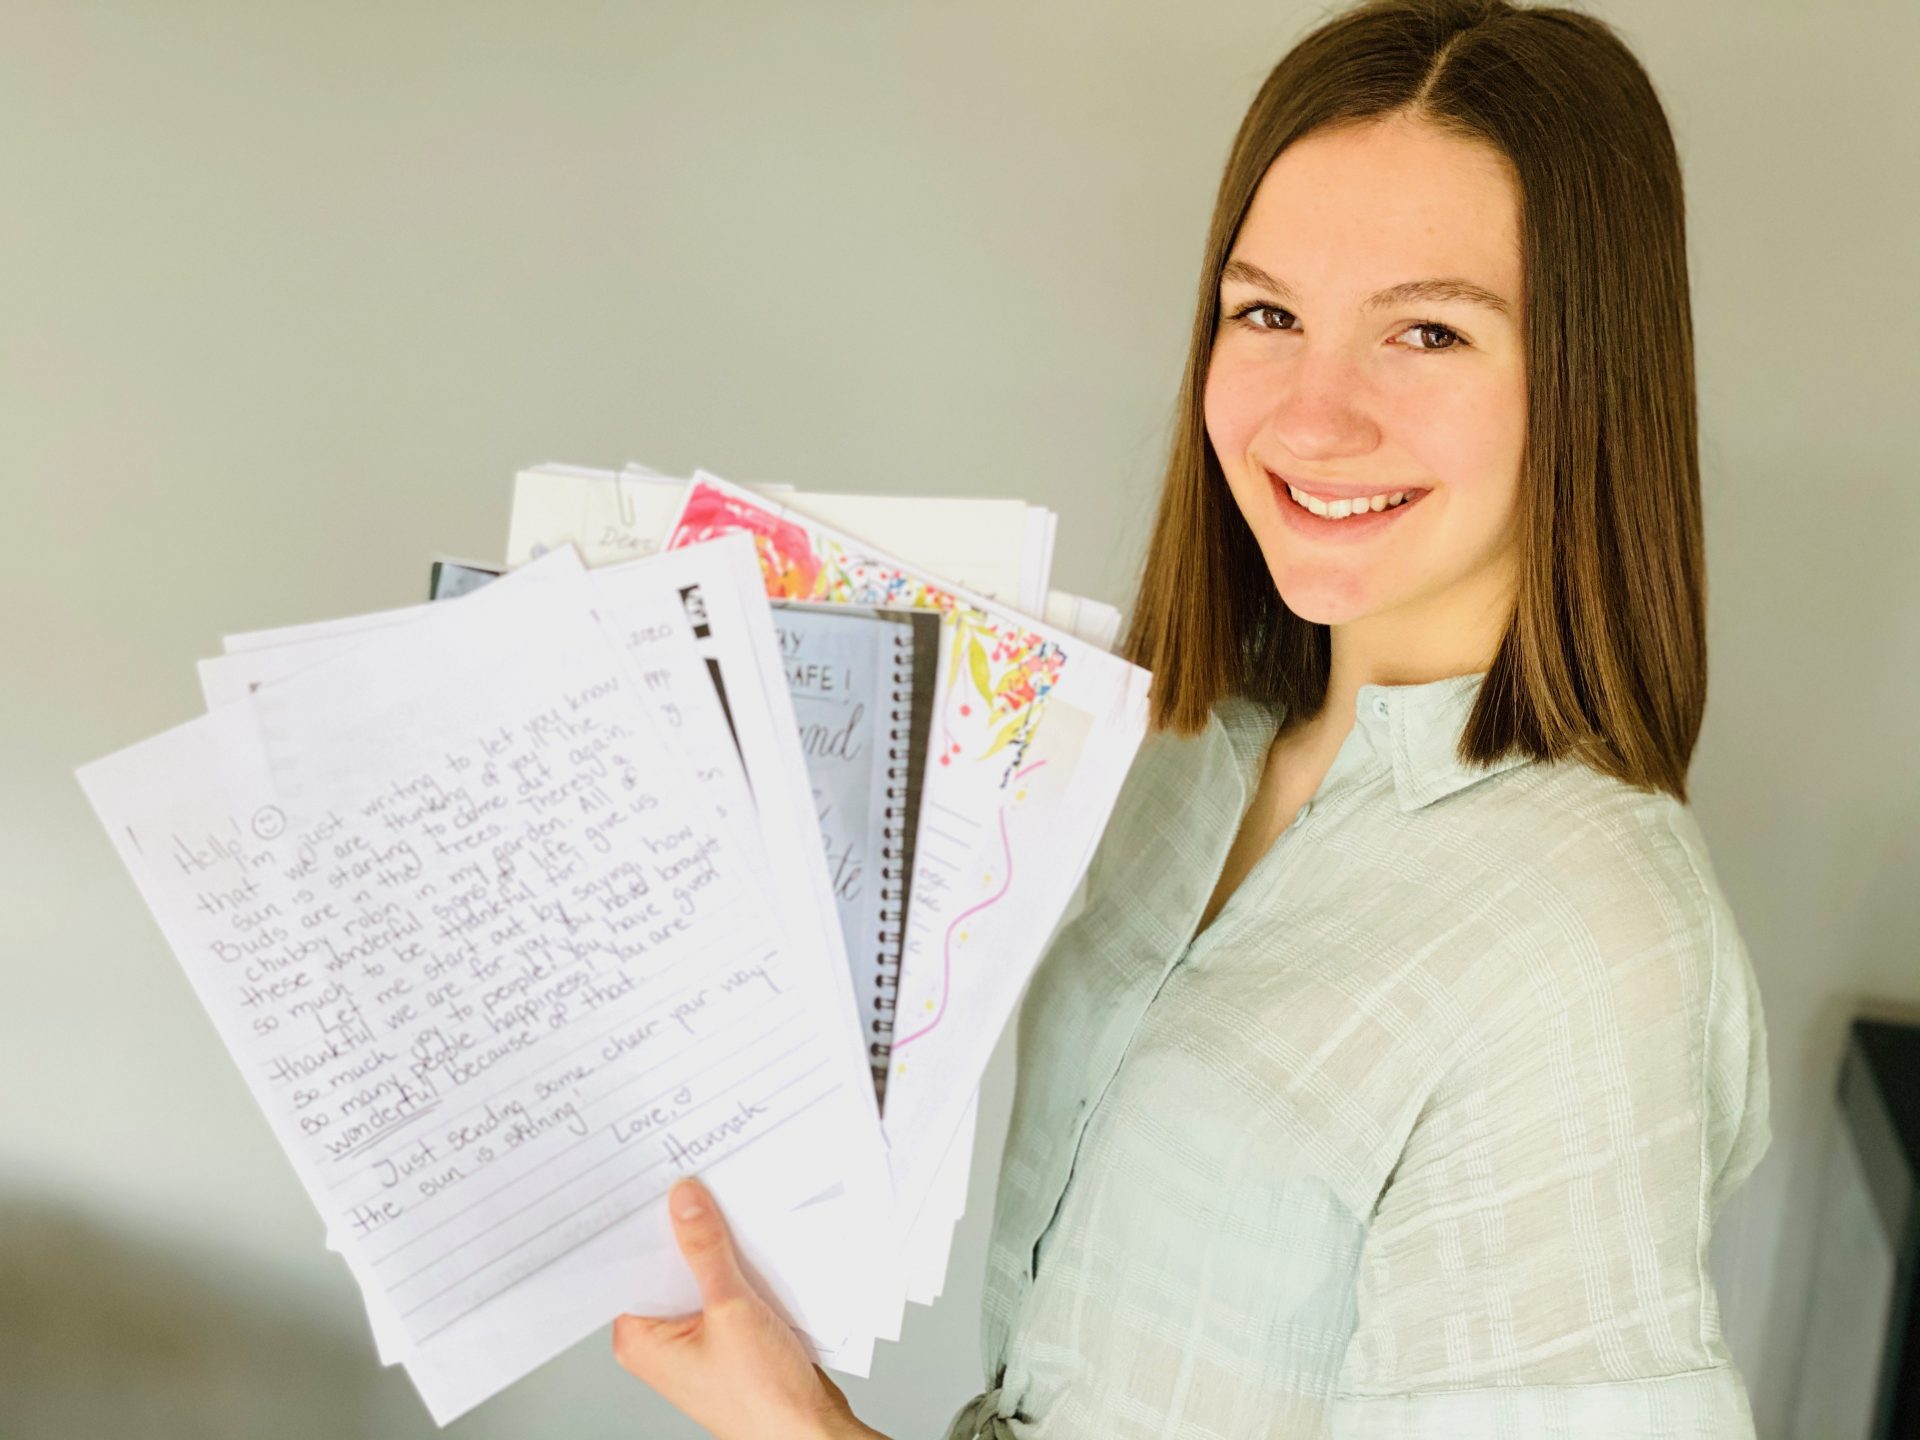 Hello! ☺
I'm just writing to let you know
that we are thinking of you! The
sun is starting to come out again.
Buds are in the trees. There's a
chubby robin in my garden. All of
these wonderful signs of life give us
so much to be thankful for!
Let me start out by saying, how
thankful we are for you! You have brought
so much joy to people! You have given
so many people happiness! You are
wonderful because of that.
Just sending some cheer your way-
the sun is shining!
Love, ♡
Hannah
Dear
2020
AY
SAFE!
and